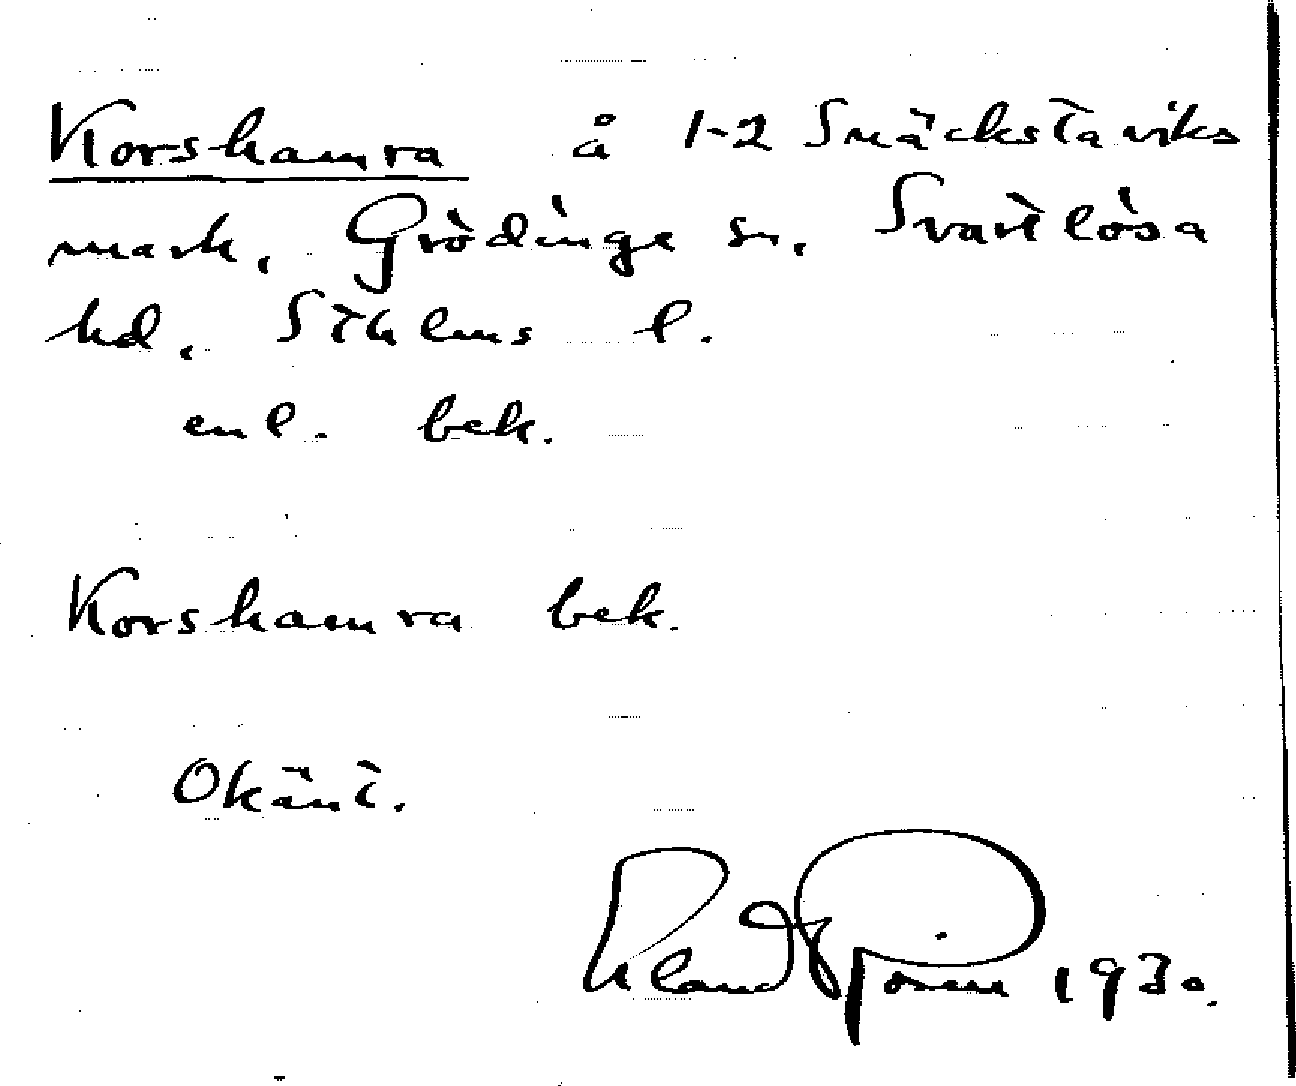 Korshamra å 1-2 Snäckstaviks
mark, Grödinge sn, Svartlösa
hd, Sthlms l.
enl. bek.
Korshamra bek.
Okänt.
1930.